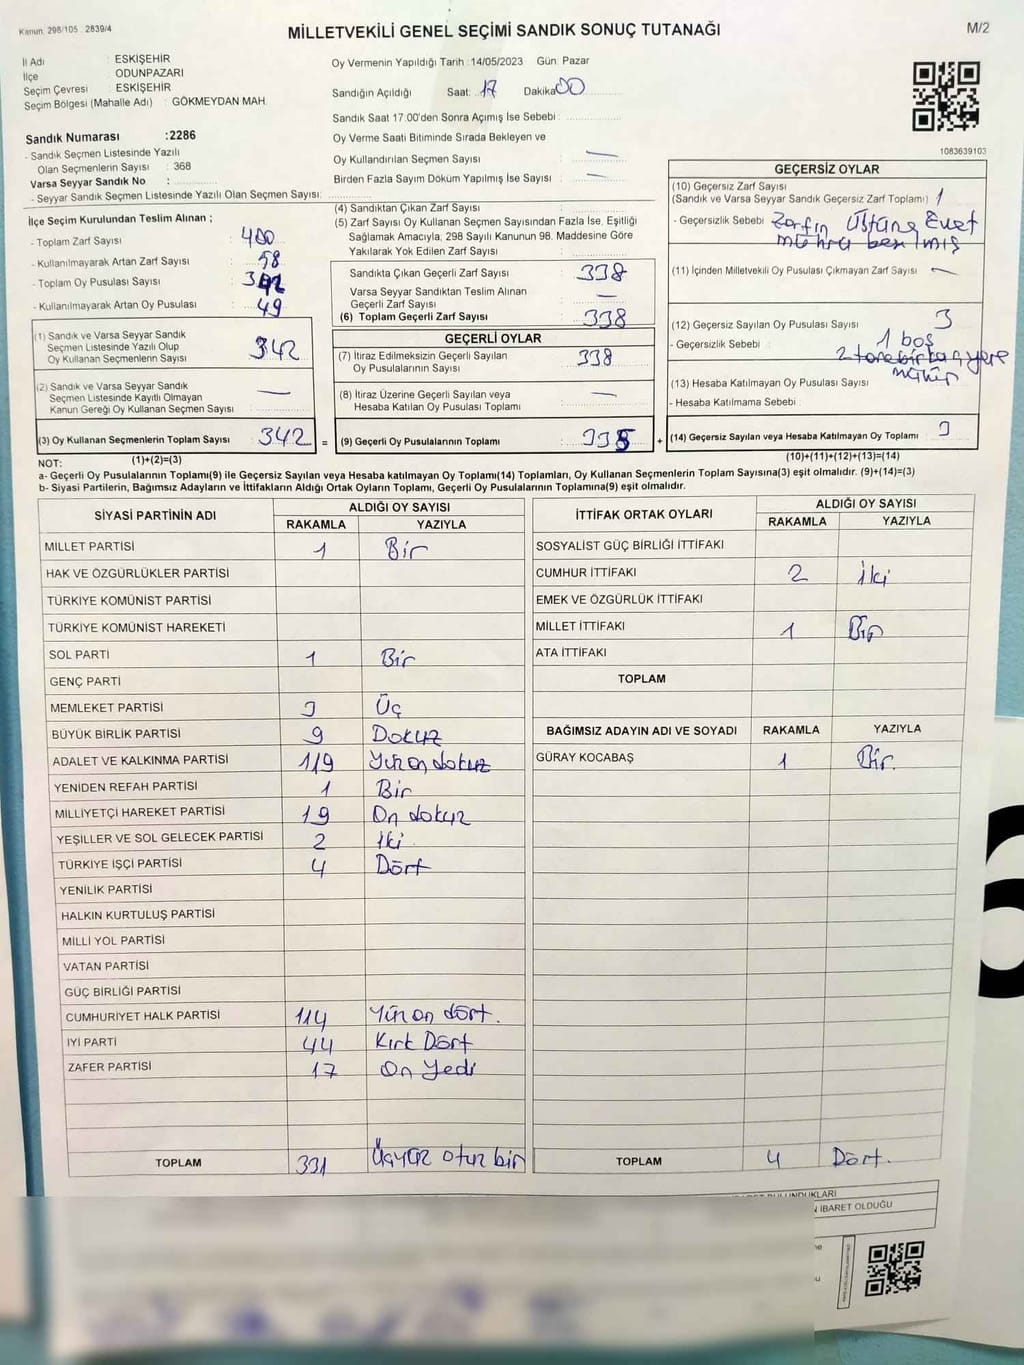 Kanun. 298/105 2839/4
MİLLETVEKİLİ GENEL SEÇİMİ SANDIK SONUÇ TUTANAĞI
M/2
İl Adı : ESKİŞEHİR
İlçe : ODUNPAZARI
Seçim Çevresi : ESKİŞEHİR
Seçim Bölgesi (Mahalle Adı) : GÖKMEYDAN MAH.
Sandık Numarası :2286
- Sandık Seçmen Listesinde Yazılı
Olan Seçmenlerin Sayısı : 368
Varsa Seyyar Sandık No :
- Seyyar Sandık Seçmen Listesinde Yazılı Olan Seçmen Sayısı:
Oy Vermenin Yapıldığı Tarih :14/05/2023 Gün: Pazar
Sandığın Açıldığı Saat: 17 Dakika 00
Sandık Saat 17:00'den Sonra Açımış İse Sebebi :
Oy Verme Saati Bitiminde Sırada Bekleyen ve
Oy Kullandırılan Seçmen Sayısı : —
Birden Fazla Sayım Döküm Yapılmış İse Sayısı : —
1083639103
İlçe Seçim Kurulundan Teslim Alınan ;
- Toplam Zarf Sayısı : 400
- Kullanılmayarak Artan Zarf Sayısı : 58
- Toplam Oy Pusulası Sayısı :
- Kullanılmayarak Artan Oy Pusulası : 49
(1) Sandık ve Varsa Seyyar Sandık
Seçmen Listesinde Yazılı Olup
Oy Kullanan Seçmenlerın Sayısı : 342
(2) Sandık ve Varsa Seyyar Sandık
Seçmen Listesinde Kayıtlı Olmayan
Kanun Gereği Oy Kullanan Seçmen Sayısı : —
(3) Oy Kullanan Seçmenlerin Toplam Sayısı : 342 =
(4) Sandıktan Çıkan Zarf Sayısı :
(5) Zarf Sayısı Oy Kullanan Seçmen Sayısından Fazla İse, Eşitliği
Sağlamak Amacıyla, 298 Sayılı Kanunun 98. Maddesine Göre
Yakılarak Yok Edilen Zarf Sayısı :
Sandıkta Çıkan Geçerli Zarf Sayısı : 338
Varsa Seyyar Sandıktan Teslim Alınan
Geçerli Zarf Sayısı : —
(6) Toplam Geçerli Zarf Sayısı : 338
GEÇERLİ OYLAR
(7) İtiraz Edilmeksizin Geçerli Sayılan
Oy Pusulalarının Sayısı : 338
(8) İtiraz Üzerine Geçerli Sayılan veya
Hesaba Katılan Oy Pusulası Toplamı : —
(9) Geçerli Oy Pusulalarının Toplamı : +
GEÇERSİZ OYLAR
(10) Geçersiz Zarf Sayısı
(Sandık ve Varsa Seyyar Sandık Geçersiz Zarf Toplamı) : 1
- Geçersizlik Sebebi : Zarfın Üstüne Evet
mührü basılmış
(11) İçinden Milletvekili Oy Pusulası Çıkmayan Zarf Sayısı : —
(12) Geçersiz Sayılan Oy Pusulası Sayısı : 3
- Geçersizlik Sebebi : 1 boş
2 tane birkaç yere
mühür
(13) Hesaba Katılmayan Oy Pusulası Sayısı :
- Hesaba Katılmama Sebebi :
(14) Geçersiz Sayılan veya Hesaba Katılmayan Oy Toplamı : 3
NOT: (1)+(2)=(3)
(10)+(11)+(12)+(13)=(14)
a- Geçerli Oy Pusulalarının Toplamı(9) ile Geçersiz Sayılan veya Hesaba katılmayan Oy Toplamı(14) Toplamları, Oy Kullanan Seçmenlerin Toplam Sayısına(3) eşit olmalıdır. (9)+(14)=(3)
b- Siyasi Partilerin, Bağımsız Adayların ve İttifakların Aldığı Ortak Oyların Toplamı, Geçerli Oy Pusulalarının Toplamına(9) eşit olmalıdır.
SİYASİ PARTİNİN ADI
ALDIĞI OY SAYISI
RAKAMLA YAZIYLA
MİLLET PARTİSİ 1 Bir
HAK VE ÖZGÜRLÜKLER PARTİSİ
TÜRKİYE KOMÜNİST PARTİSİ
TÜRKİYE KOMÜNİST HAREKETİ
SOL PARTİ 1 Bir
GENÇ PARTİ
MEMLEKET PARTİSİ 3 Üç
BÜYÜK BİRLİK PARTİSİ 9 Dokuz
ADALET VE KALKINMA PARTİSİ 119 Yüz on dokuz
YENİDEN REFAH PARTİSİ 1 Bir
MİLLİYETÇİ HAREKET PARTİSİ 19 On dokuz
YEŞİLLER VE SOL GELECEK PARTİSİ 2 İki
TÜRKİYE İŞÇİ PARTİSİ 4 Dört
YENİLİK PARTİSİ
HALKIN KURTULUŞ PARTİSİ
MİLLİ YOL PARTİSİ
VATAN PARTİSİ
GÜÇ BİRLİĞİ PARTİSİ
CUMHURİYET HALK PARTİSİ 114 Yüz on dört.
İYİ PARTİ 44 Kırk Dört
ZAFER PARTİSİ 17 On Yedi
TOPLAM 331 Üçyüz otuz bir
İTTİFAK ORTAK OYLARI
ALDIĞI OY SAYISI
RAKAMLA YAZIYLA
SOSYALİST GÜÇ BİRLİĞİ İTTİFAKI
CUMHUR İTTİFAKI 2 İki
EMEK VE ÖZGÜRLÜK İTTİFAKI
MİLLET İTTİFAKI 1 Bir
ATA İTTİFAKI
TOPLAM
BAĞIMSIZ ADAYIN ADI VE SOYADI RAKAMLA YAZIYLA
GÜRAY KOCABAŞ 1 Bir.
TOPLAM 4 Dört.
İBARET OLDUĞU
6